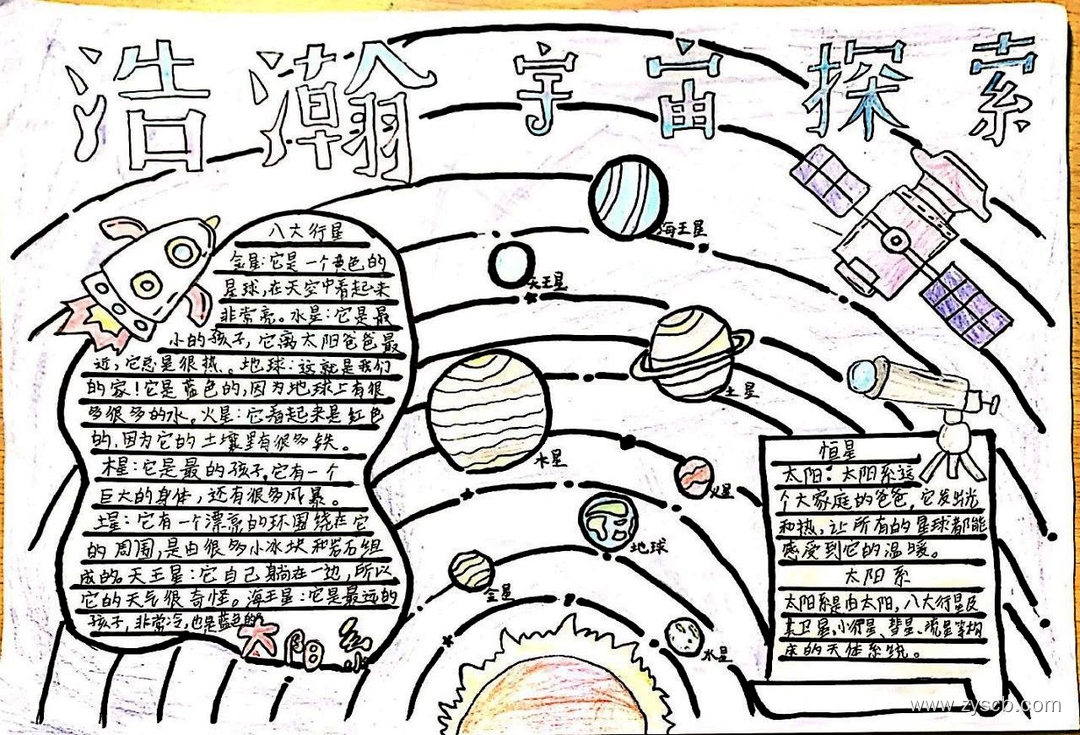 浩瀚宇宙探索
八大行星
金星:它是一个黄色的
星球,在天空中看起来
非常亮。水星:它是最
小的孩子,它离太阳爸爸最
近,它总是很热。地球:这就是我们
的家!它是蓝色的,因为地球上有很
多很多的水。火星:它看起来是红色
的,因为它的土壤里有很多铁。
木星:它是最的孩子,它有一个
巨大的身体,还有很多风暴。
土星:它有一个漂亮的环围绕在它
的周围,是由很多小冰块和岩石组
成的。天王星:它自己躺在一边,所以
它的天气很奇怪。海王星:它是最远的
孩子,非常冷,也是蓝色的
太阳系
海王星
天王星
土星
木星
火星
地球
金星
水星
恒星
太阳:太阳系这
个大家庭的爸爸,它发出光
和热,让所有的星球都能
感受到它的温暖。
太阳系
太阳系是由太阳,八大行星及
其卫星、小行星、彗星、流星等构
成的天体系统。
www.zyscb.com